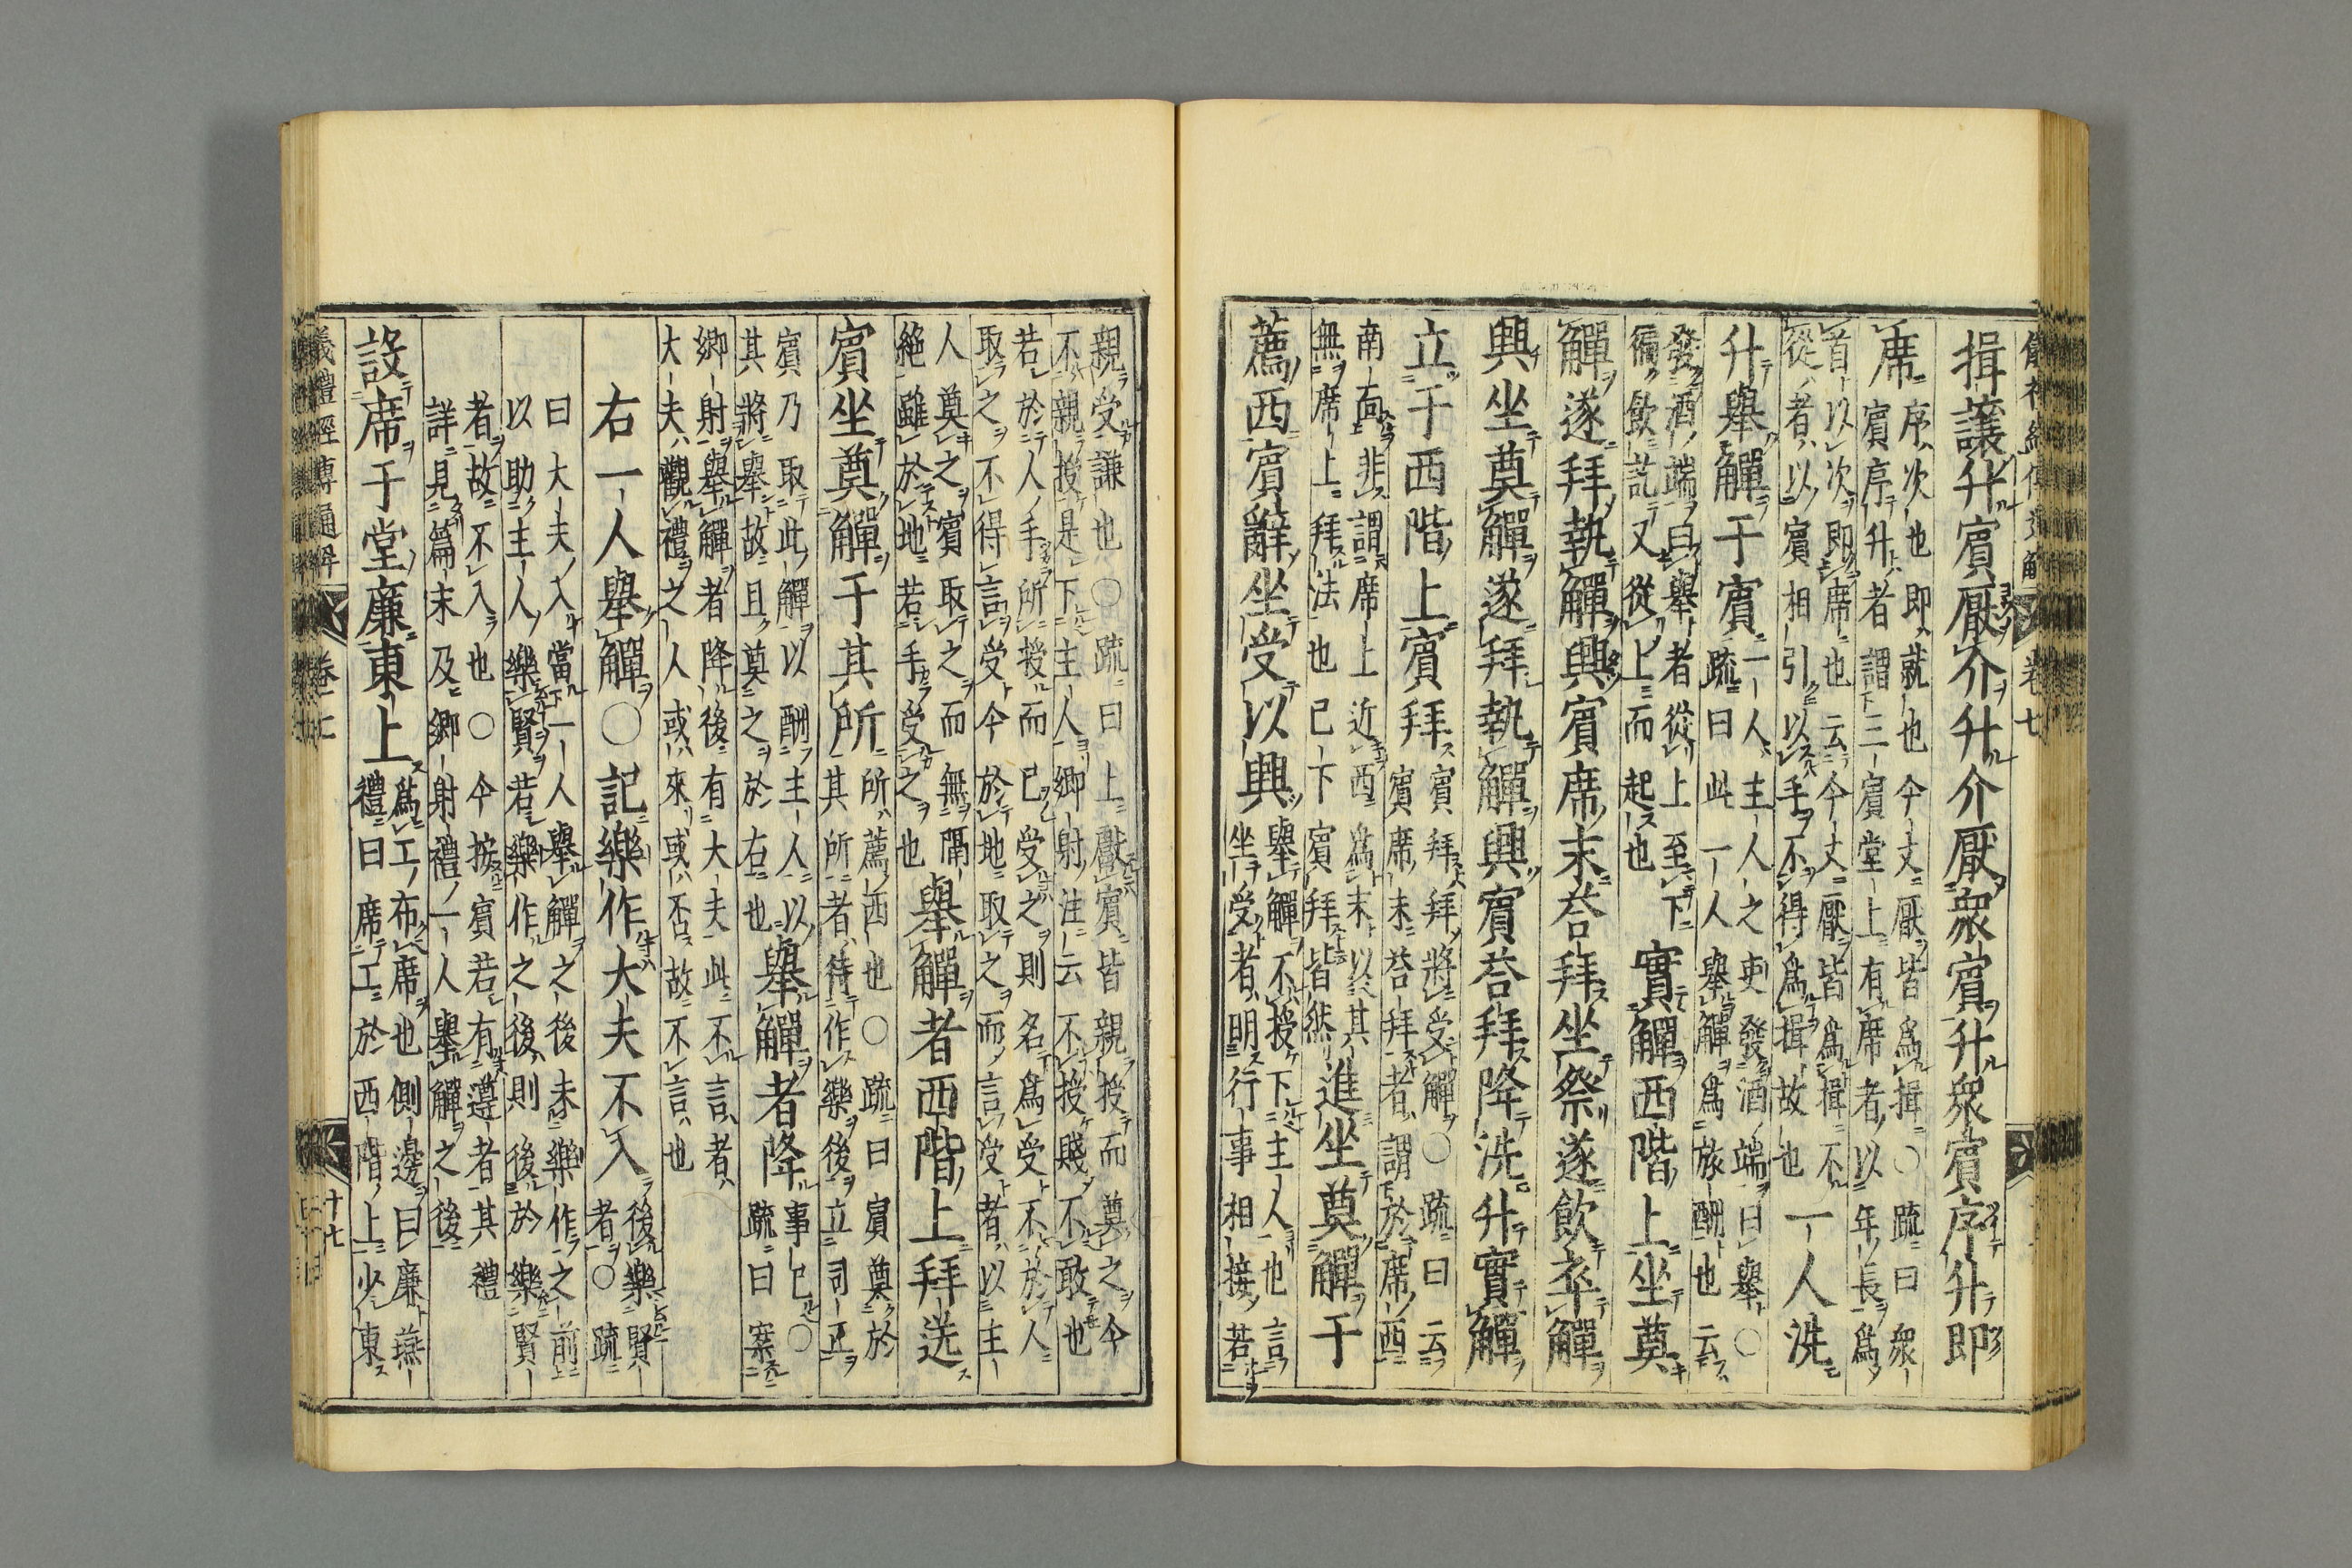 儀禮經傳通解 卷七
揖讓升賓厭介升介厭衆賓升衆賓序升即
席序次也即就也今文厭皆爲揖○疏曰衆
賓序升者謂三賓堂上有席者以年長爲
首以次即席也云今文厭皆爲揖不
從者以賓相引以手不得爲揖故也一人洗
升舉觶于賓一人主人之吏發酒端曰舉○
疏曰此一人舉觶爲旅酬也云
發酒端曰舉者從上至下
徧飲訖又從上而起也實觶西階上坐奠
觶遂拜執觶興賓席末荅拜坐祭遂飲卒觶
興坐奠觶遂拜執觶興賓荅拜降洗升實觶
立于西階上賓拜賓拜拜將受觶○疏曰云
賓席末荅拜者謂於席西
南面非謂席上近西爲末以其
無席上拜法也已下賓拜皆然進坐奠觶于
薦西賓辭坐受以興舉觶不授下主人也言
坐受者明行事相接若
親受謙也○疏曰上獻賓皆親授而奠之今
不親授是下主人鄉射注云不授賤不敢也
若於人手所授而已受之則名爲受不於人
取之不得言受今於地取之而言受者以主
人奠之賓取之而無隔
絶雖於地若手受之也舉觶者西階上拜送
賓坐奠觶于其所所薦西也○疏曰賓奠於
其所者待作樂後立司正
賓乃取此觶以酬主人以
其將舉故且奠之於右也舉觶者降事已○
疏曰案
鄉射舉觶者降後有大夫此不言者
大夫觀禮之人或來或否故不言也
右一人舉觶○記樂作大夫不入後樂賢
者○疏
曰大夫入當一人舉觶之後未樂作之前
以助主人樂賢若樂作之後則後於樂賢
者故不入也○今按賓若有遵者其禮
詳見篇末及鄉射禮一人舉觶之後
設席于堂廉東上爲工布席也側邊曰廉燕
禮曰席工於西階上少東
儀禮經傳通解 卷七 十七